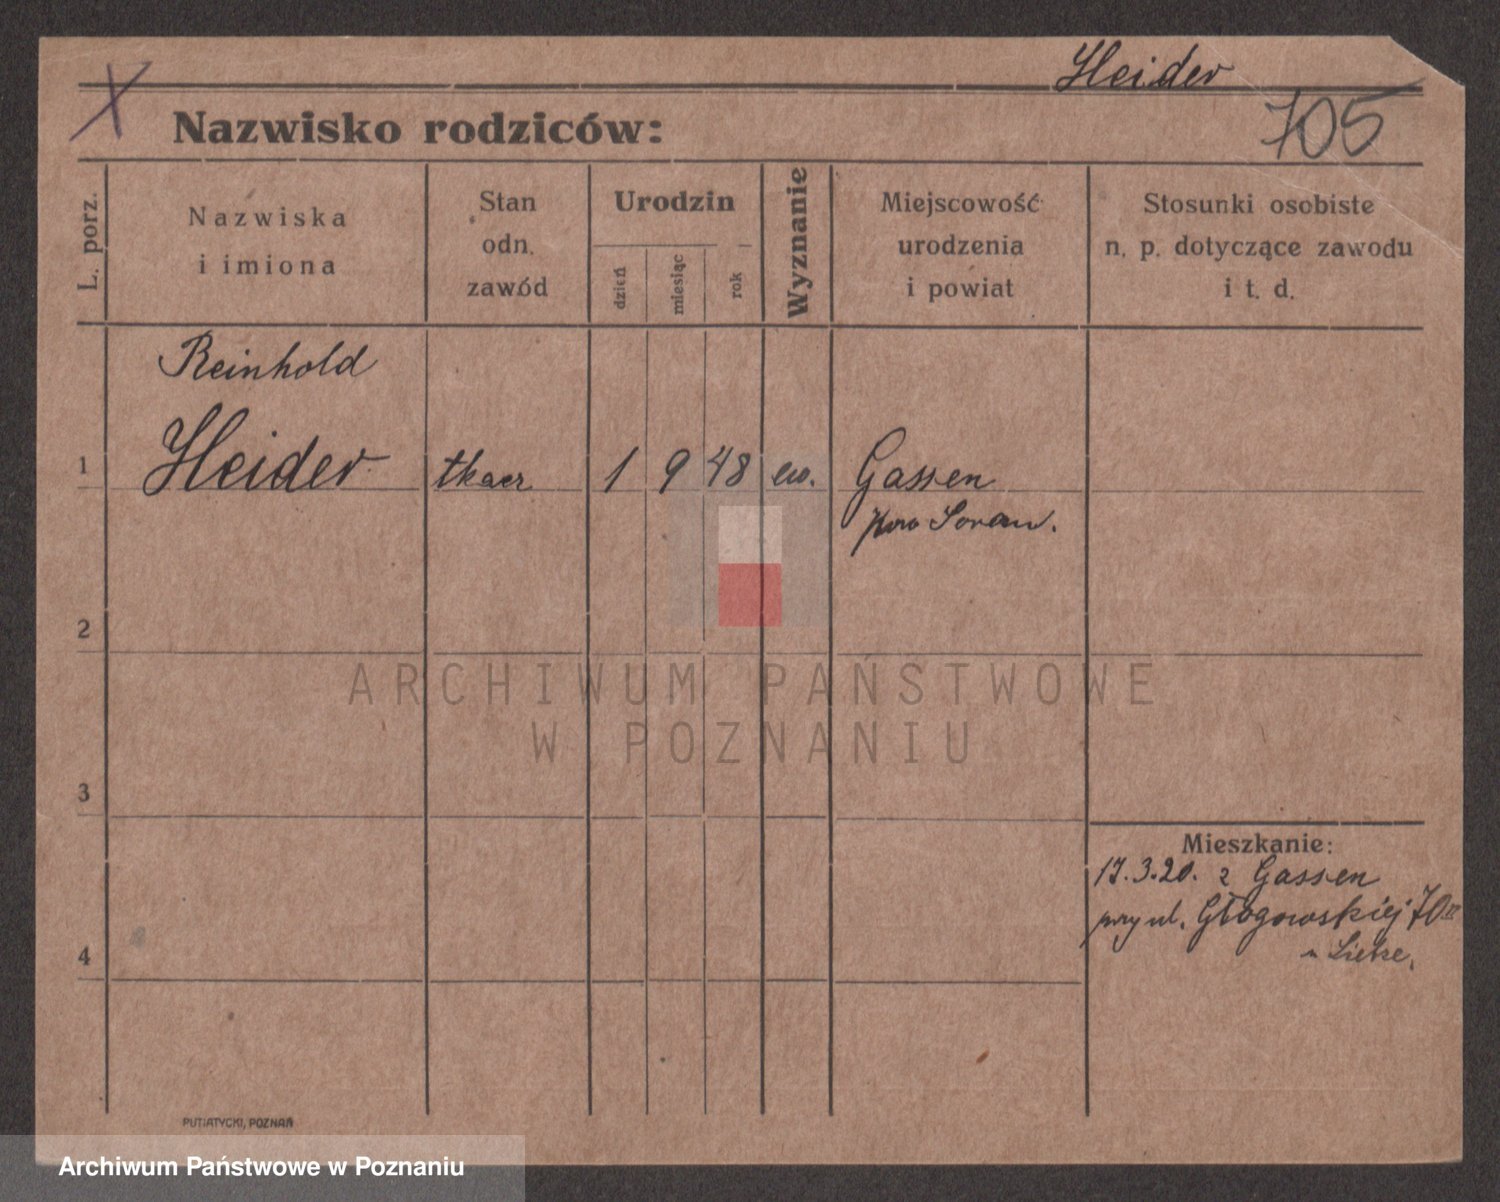 Heider
X
705
Nazwisko rodziców:
L. porz.
Nazwiska
i imiona
Stan
odn.
zawód
Urodzin
dzień
miesiąc
rok
Wyznanie
Miejscowość
urodzenia
i powiat
Stosunki osobiste
n. p. dotyczące zawodu
i t. d.
Reinhold
1 Heider tkacz 1 9 48 ew. Gassen
Sorau.
2
ARCHIWUM PAŃSTWOWE
W POZNANIU
3
Mieszkanie:
17.3.20. z Gassen
przy ul. Głogowskiej 70 II
4
PUTIATYCKI, POZNAŃ
Archiwum Państwowe w Poznaniu